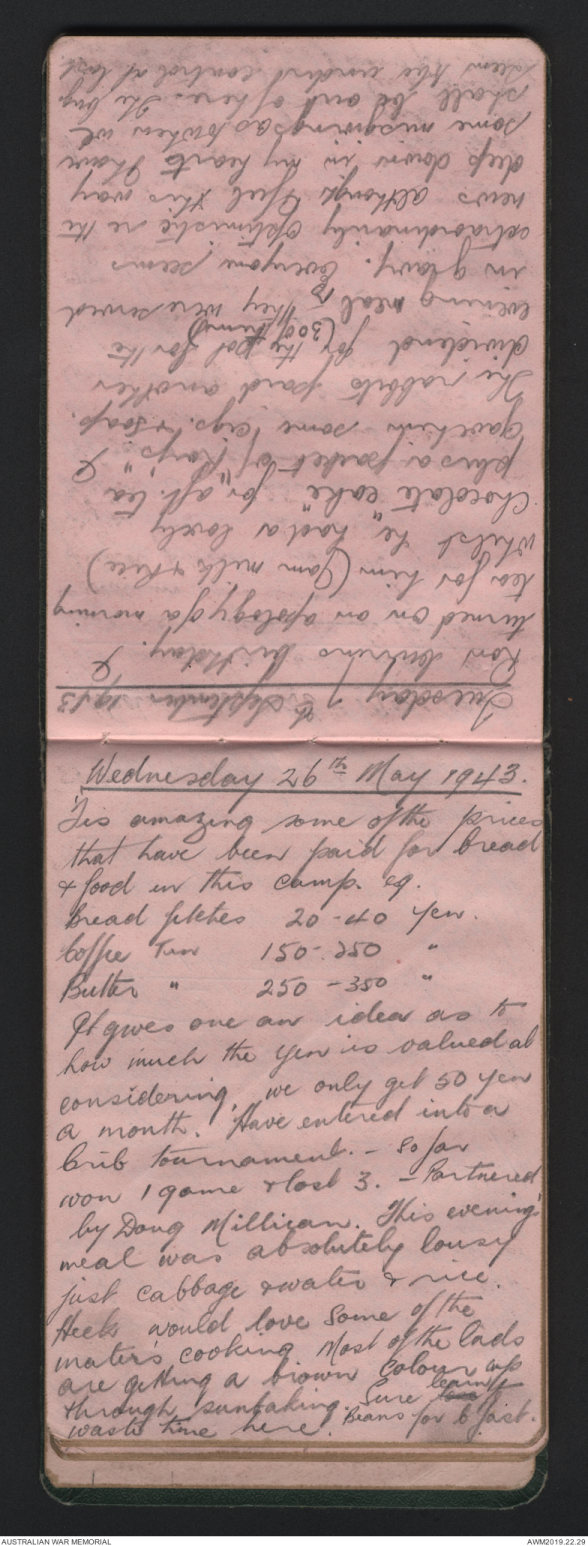 Tuesday 7th September 1943
Ron birthday. I
turned on an apology of a morning
tea for him (Jam milk & Rice)
whilst he "had" a lovely
"Chocolate cake" for aft. tea
plus a packet of "Kays". I
gave him some cigs. & soap.
The rabbits paid another
dividend for the pot for the
(30 of them)
evening meal & they were served
in gravy. Everyone seems
extraordinarily optimistic re the
news although I feel this way
deep down in my heart I have
some misgivings as to when we
shall be out of here. The
seem the control at last
Wednesday 26th May 1943.
'Tis amazing some of the prices
that have been paid for bread
& food in this camp. eg.
Bread 20-40 yen.
Coffee Tin 150-250 "
Butter " 250-350 "
It gives one an idea as to
how much the yen is valued at
considering, we only get 50 yen
a month. Have entered into a
crib tournament. - So far
won 1 game & lost 3. - Partnered
by Doug Millican. This evening's
meal was absolutely lousy
just cabbage & water & rice.
Heck would love some of the
mater's cooking Most of the lads
are getting a brown colour up
through sunbaking. Sure
waste time here! Beans for b'fast.
AUSTRALIAN WAR MEMORIAL
AWM2019.22.29